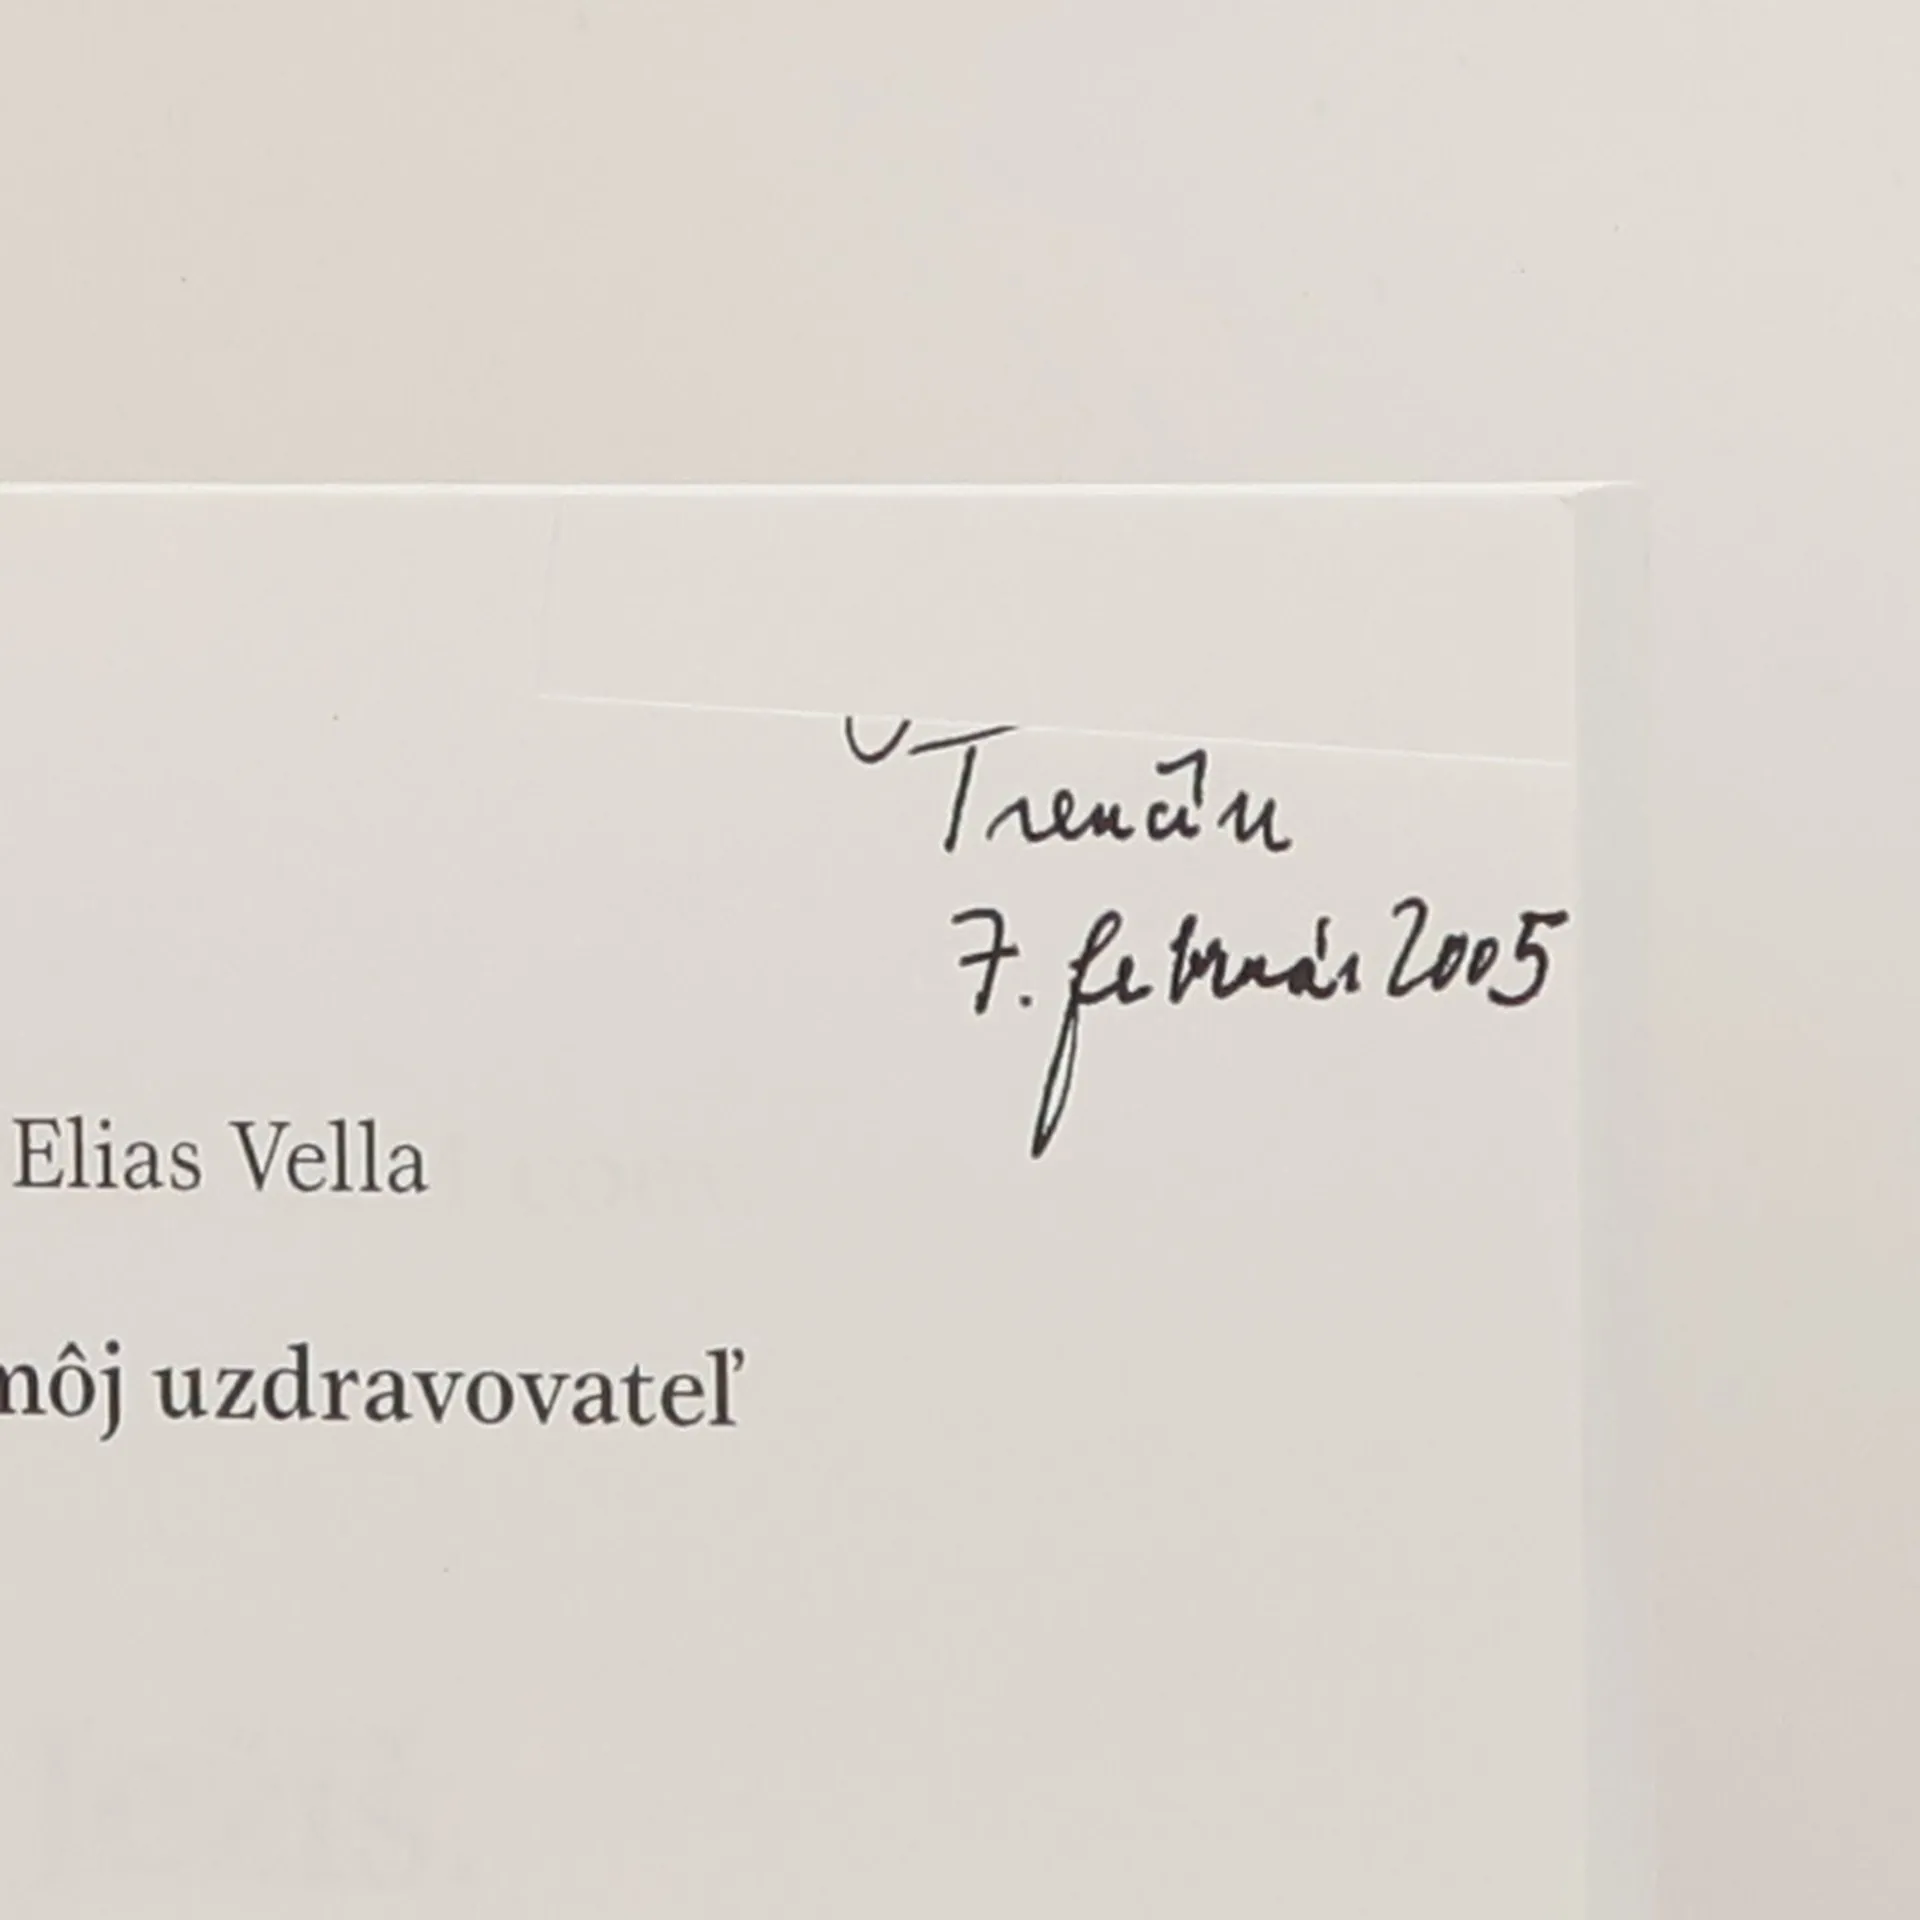 Trenčín
7. február 2005
Elias Vella
môj uzdravovateľ